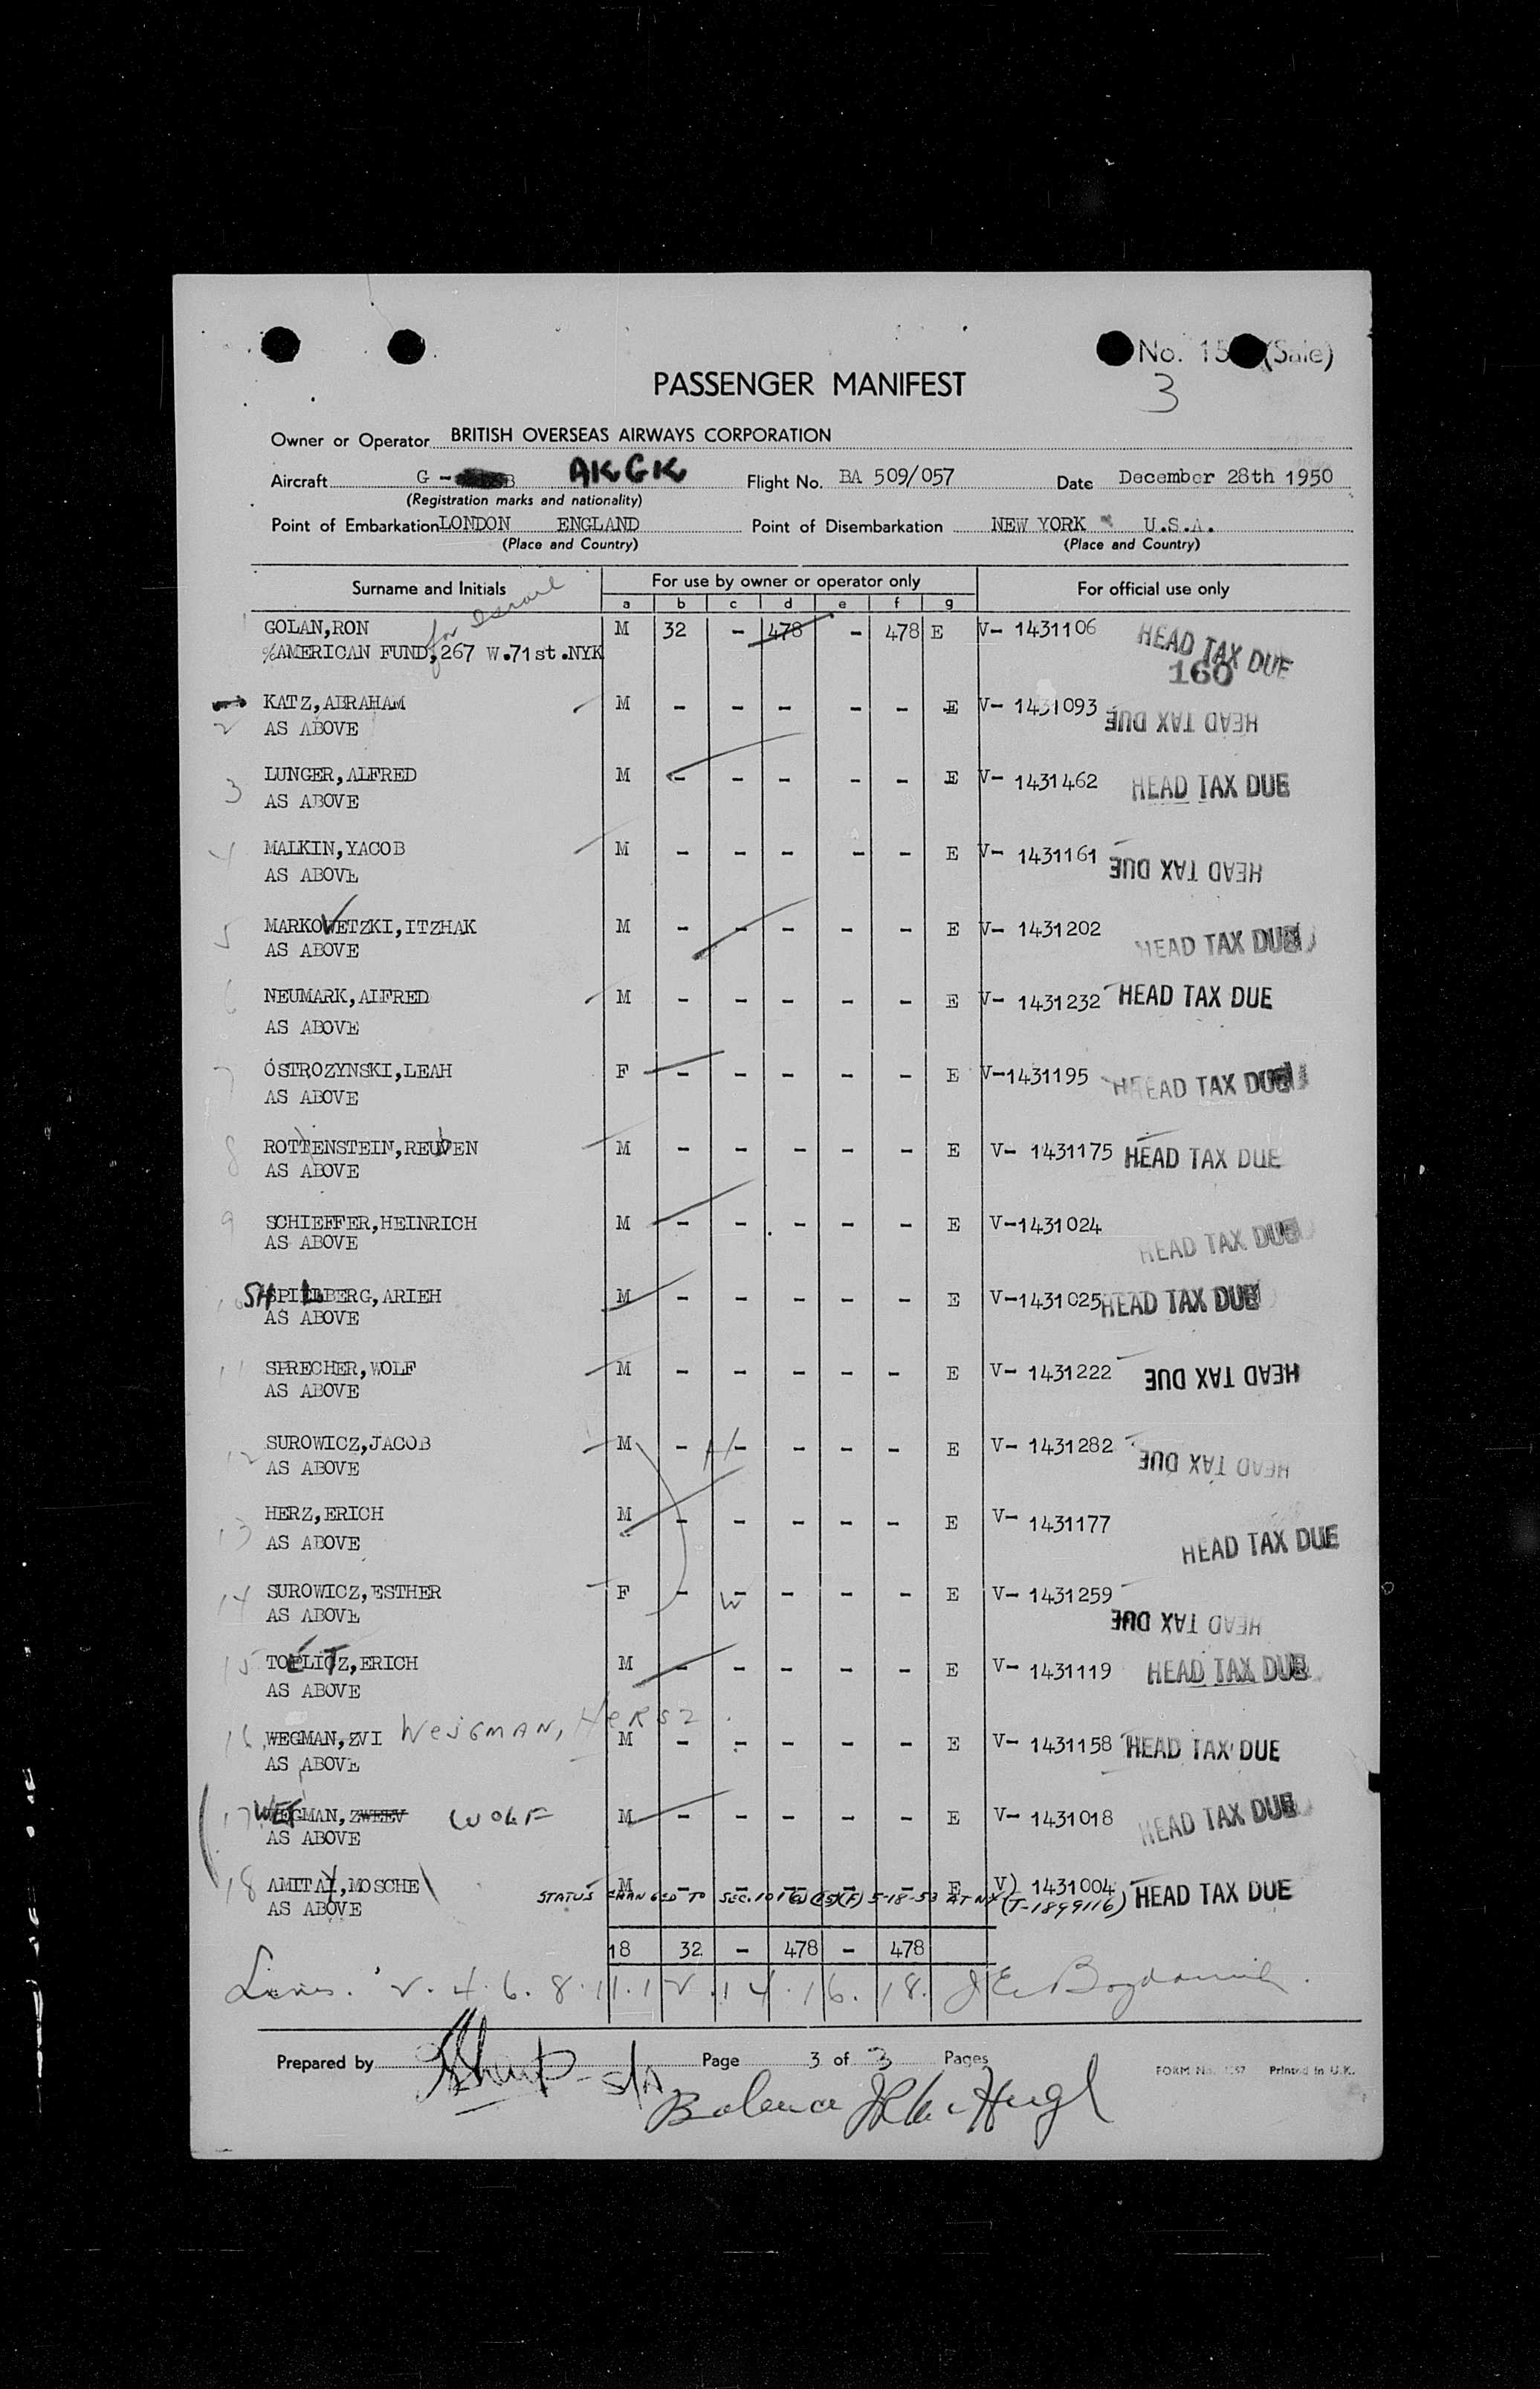 No. 15 (Sale)
3
PASSENGER MANIFEST
Owner or Operator BRITISH OVERSEAS AIRWAYS CORPORATION
Aircraft G - AKGK Flight No. BA 509/057 Date December 28th 1950
(Registration marks and nationality)
Point of Embarkation LONDON ENGLAND Point of Disembarkation NEW YORK U.S.A.
(Place and Country) (Place and Country)
Surname and Initials For use by owner or operator only For official use only
a b c d e f g
1 GOLAN,RON for Israel M 32 - 478 - 478 E V- 1431106 HEAD TAX DUE
%AMERICAN FUND,267 W.71st.NYK 160
2 KATZ,ABRAHAM M - - - - - E V- 1431093 HEAD TAX DUE
AS ABOVE
3 LUNGER,ALFRED M - - - - - E V- 1431462 HEAD TAX DUE
AS ABOVE
4 MALKIN,YACOB M - - - - - E V- 1431161 HEAD TAX DUE
AS ABOVE
5 MARKOVETZKI,ITZHAK M - - - - - E V- 1431202 HEAD TAX DUE
AS ABOVE
6 NEUMARK,ALFRED M - - - - - E V- 1431232 HEAD TAX DUE
AS ABOVE
7 OSTROZYNSKI,LEAH F - - - - - E V-1431195 HEAD TAX DUE
AS ABOVE
8 ROTTENSTEIN,REUBEN M - - - - - E V- 1431175 HEAD TAX DUE
AS ABOVE
9 SCHIEFFER,HEINRICH M - - - - - E V-1431024 HEAD TAX DUE
AS ABOVE
10 SHPILBERG,ARIEH M - - - - - E V-1431025 HEAD TAX DUE
AS ABOVE
11 SPRECHER,WOLF M - - - - - E V- 1431222 HEAD TAX DUE
AS ABOVE
12 SUROWICZ,JACOB M - H - - - - E V- 1431282 HEAD TAX DUE
AS ABOVE
13 HERZ,ERICH M - - - - - E V- 1431177 HEAD TAX DUE
AS ABOVE
14 SUROWICZ,ESTHER F - W - - - - E V- 1431259 HEAD TAX DUE
AS ABOVE
15 TOELITZ,ERICH M - - - - - E V- 1431119 HEAD TAX DUE
AS ABOVE
16 WEGMAN,ZVI WejGMAN, HeRSZ. M - - - - - E V- 1431158 HEAD TAX DUE
AS ABOVE
17 WEJGMAN, ZWEEV WOLF M - - - - - E V- 1431018 HEAD TAX DUE
AS ABOVE
18 AMITAY,MOSCHE M - - - - - E V) 1431004 HEAD TAX DUE
AS ABOVE STATUS CHANGED TO SEC. 101(a)(15)(F) 5-18-53 AT NY (T-1899116)
18 32 - 478 - 478
Lines. 2. 4. 6. 8. 11. 12. 14. 16. 18.
Prepared by Page 3 of 3 Pages
FORM No. Printed in U.K.
Balance